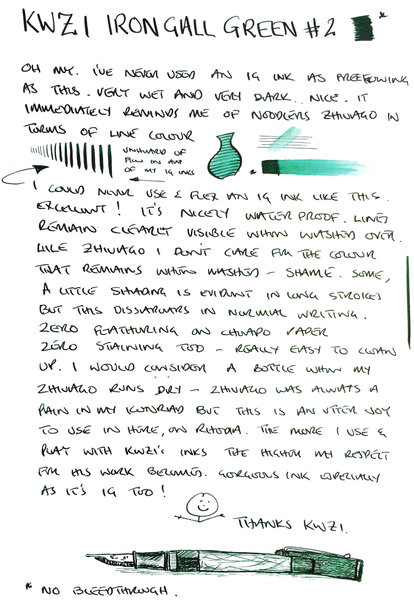 KWZI IRON GALL GREEN #2 *
OH MY. I'VE NEVER USED AN IG INK AS FREEFLOWING
AS THIS. VERY WET AND VERY DARK. NICE. IT
IMMEDIATELY REMINDS ME OF NOODLERS ZHIVAGO IN
TERMS OF LINE COLOUR
UNHEARD OF
FLOW IN ANY
OF MY IG INKS
I COULD NEVER USE & FLEX AN IG INK LIKE THIS.
EXCELLENT! IT'S NICELY WATERPROOF. LINES
REMAIN CLEARLY VISIBLE WHEN WASHED OVER.
LIKE ZHIVAGO I DON'T CARE FOR THE COLOUR
THAT REMAINS WHEN WASHED – SHAME. SOME,
A LITTLE SHADING IS EVIDENT IN LONG STROKES
BUT THIS DISSAPEARS IN NORMAL WRITING.
ZERO FEATHERING ON CHEAPO PAPER
ZERO STAINING TOO – REALLY EASY TO CLEAN
UP. I WOULD CONSIDER A BOTTLE WHEN MY
ZHIVAGO RUNS DRY – ZHIVAGO WAS ALWAYS A
PAIN IN MY KONRAD BUT THIS IS AN UTTER JOY
TO USE IN HERE, ON RHODIA. THE MORE I USE &
PLAY WITH KWZI'S INKS THE HIGHER MY RESPECT
FOR HIS WORK BECOMES. GORGEOUS INK ESPECIALLY
AS IT'S IG TOO!
THANKS KWZI.
* NO BLEEDTHROUGH.